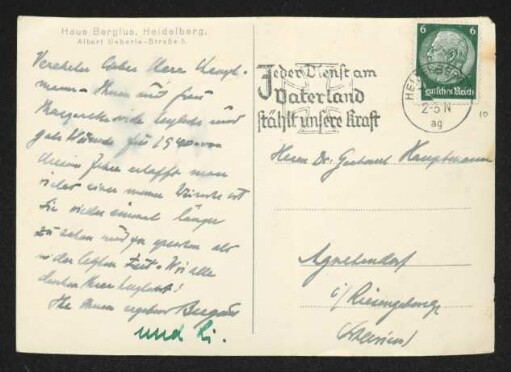 Haus Bergius, Heidelberg,
Albert Ueberle-Straße 5.
Verehrter lieber Herr Haupt-
mann - Ihnen und Frau
Margarete viele und
gute Wünsche für 1940 von
Jahre man
einer meiner Wünsche ist
Sie wieder einmal länger
zu sehen und zu sprechen als
in der letzten Zeit - Wir alle
Ihr Ihnen ergebener Bergius
und
6 6
Deutsches Reich
2-5 N
ag
Jeder Dienst am
Vaterland
stählt unsere Kraft
Herrn Dr. Gerhart Hauptmann
Agnetendorf
i/Riesengebirge
(Schlesien)